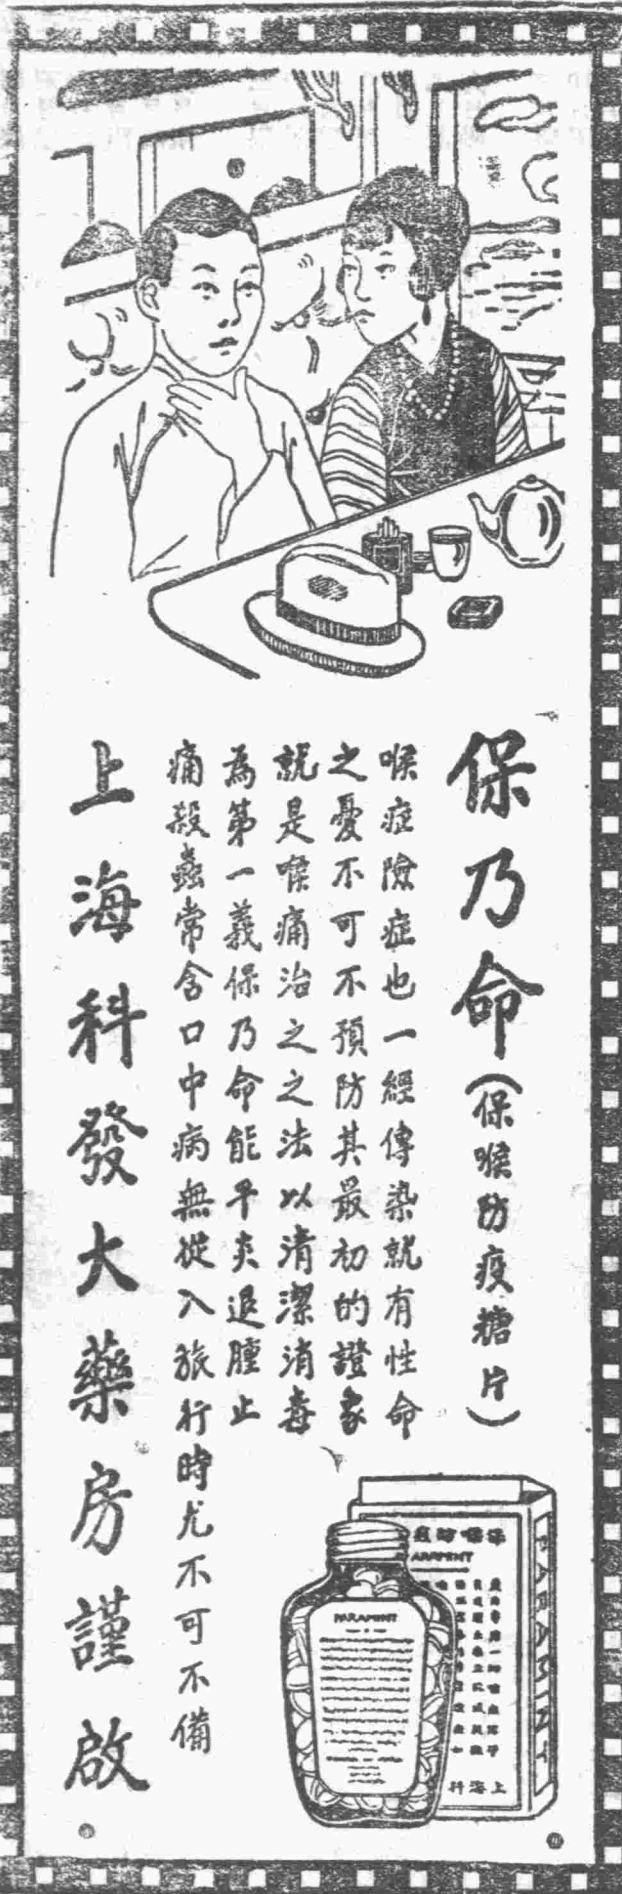 保乃命(保喉防疫糖片)
喉症險症也一經傳染就有性命
之憂不可不預防其最初的證象
就是喉痛治之之法以清潔消毒
為第一義保乃命能平炎退腫止
痛殺蟲常含口中病無從入旅行時尤不可不備
上海科發大藥房謹啟
保喉防疫
PARAMINT
上海科
PARAMINT
PARAMINT